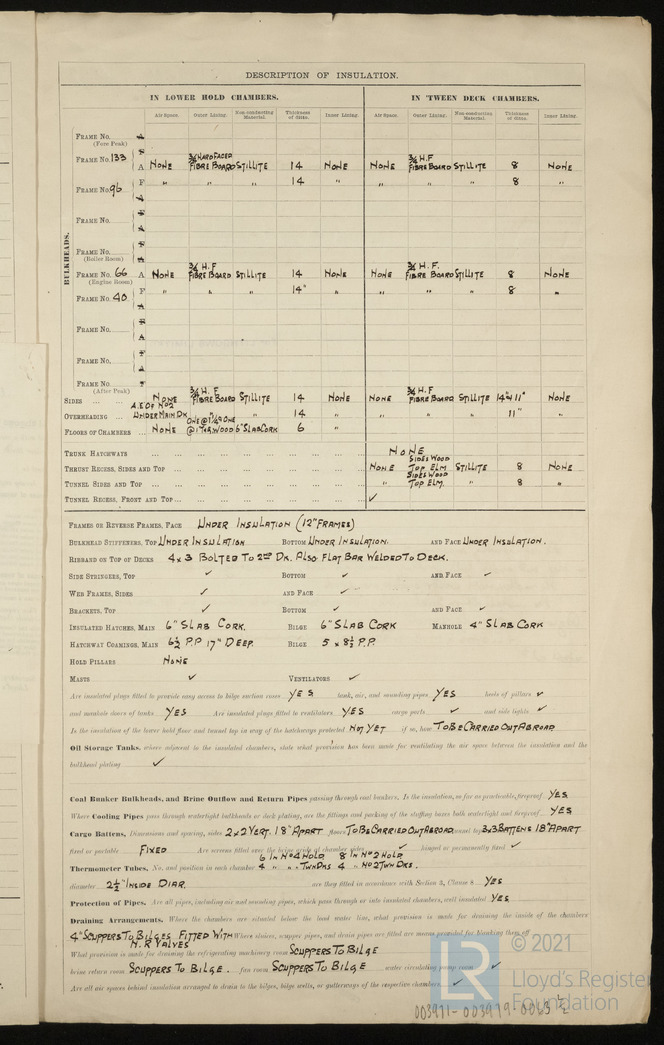 DESCRIPTION OF INSULATION.
IN LOWER HOLD CHAMBERS. IN 'TWEEN DECK CHAMBERS.
Air Space. Outer Lining. Non-conducting Material. Thickness of ditto. Inner Lining. Air Space. Outer Lining. Non-conducting Material. Thickness of ditto. Inner Lining.
BULKHEADS.
FRAME NO.
(Fore Peak)
FRAME NO. 133 A NONE 3/4 HARD FACED FIBRE BOARD STILLITE 14 NONE NONE 3/4 H.F FIBRE BOARD STILLITE 8 NONE
F " " " 14 " " " " 8 "
FRAME NO. 96
FRAME NO.
FRAME NO.
(Boiler Room)
FRAME NO. 66 A NONE 3/4 H.F FIBRE BOARD STILLITE 14 NONE NONE 3/4 H.F. FIBRE BOARD STILLITE 8 NONE
(Engine Room) F " " " 14" " " " " 8 "
FRAME NO. 40
FRAME NO.
FRAME NO.
FRAME NO.
(After Peak)
SIDES ... ... NONE 3/4 H.F FIBRE BOARD STILLITE 14 NONE NONE 3/4 H.F FIBRE BOARD STILLITE 14" & 11" NONE
A.E. OF NO2
OVERHEADING ... UNDER MAIN DK " 14 " " " " 11" "
FLOORS OF CHAMBERS ... NONE WOOD 6" SLAB CORK 6 "
TRUNK HATCHWAYS ... ... ... ... ... ... NONE
THRUST RECESS, SIDES AND TOP ... ... ... ... ... NONE SIDES WOOD TOP ELM STILLITE 8 NONE
TUNNEL SIDES AND TOP ... ... ... ... ... ... " SIDES WOOD TOP ELM. " 8 "
TUNNEL RECESS, FRONT AND TOP ... ... ... ... ... ✓
FRAMES OR REVERSE FRAMES, FACE UNDER INSULATION (12" FRAMES)
BULKHEAD STIFFENERS, TOP UNDER INSULATION BOTTOM UNDER INSULATION. AND FACE UNDER INSULATION.
RIBBAND ON TOP OF DECKS 4 x 3 BOLTED TO 2ND DK. ALSO FLAT BAR WELDED TO DECK.
SIDE STRINGERS, TOP ✓ BOTTOM ✓ AND FACE ✓
WEB FRAMES, SIDES ✓ AND FACE ✓
BRACKETS, TOP ✓ BOTTOM ✓ AND FACE ✓
INSULATED HATCHES, MAIN 6" SLAB CORK. BILGE 6" SLAB CORK MANHOLE 4" SLAB CORK
HATCHWAY COAMINGS, MAIN 6½ P.P 17" DEEP. BILGE 5 x 8½ P.P.
HOLD PILLARS NONE
MASTS ✓ VENTILATORS ✓
Are insulated plugs fitted to provide easy access to bilge suction roses YES tank, air, and sounding pipes YES heels of pillars ✓
and manhole doors of tanks YES Are insulated plugs fitted to ventilators YES cargo ports ✓ and side lights ✓
Is the insulation of the lower hold floor and tunnel top in way of the hatchways protected NOT YET if so, how TO BE CARRIED OUT ABROAD
Oil Storage Tanks, where adjacent to the insulated chambers, state what provision has been made for ventilating the air space between the insulation and the
bulkhead plating ✓
Coal Bunker Bulkheads, and Brine Outflow and Return Pipes passing through coal bunkers. Is the insulation, so far as practicable, fireproof YES
Where Cooling Pipes pass through watertight bulkheads or deck plating, are the fittings and packing of the stuffing boxes both watertight and fireproof YES
Cargo Battens, Dimensions and spacing, sides 2 x 2 VERT. 18" APART floors TO BE CARRIED OUT ABROAD 3 x 3 BATTENS 18" APART
fixed or portable FIXED Are screens fitted over the brine grids at chamber sides ✓ hinged or permanently fixed ✓
6 IN NO4 HOLD 8 IN NO2 HOLD
Thermometer Tubes, No. and position in each chamber 4 " " TWN DKS 4 " NO2 TWN DKS.
diameter 2½" INSIDE DIAR. are they fitted in accordance with Section 3, Clause 8 YES
Protection of Pipes. Are all pipes, including air and sounding pipes, which pass through or into insulated chambers, well insulated YES
Draining Arrangements. Where the chambers are situated below the load water line, what provision is made for draining the inside of the chambers
4" SCUPPERS TO BILGES FITTED WITH N.R VALVES Where sluices, scupper pipes, and drain pipes are fitted are means provided for blanking them off
What provision is made for draining the refrigerating machinery room SCUPPERS TO BILGE
brine return room SCUPPERS TO BILGE. fan room SCUPPERS TO BILGE water circulating pump room ✓
Are all air spaces behind insulation arranged to drain to the bilges, bilge wells, or gutterways of the respective chambers ✓
© 2021
LR
Lloyd's Register
Foundation
003971-003979-0063 ½